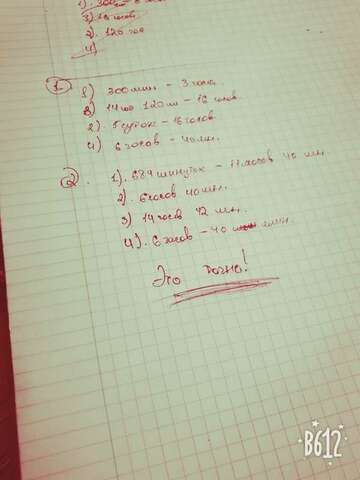 3) 18 часов
2) 120 час
4)
1.
1) 300 мин - 3 часа
3) 14 час 120 м - 16 часов.
2) 5 суток - 16 часов
4) 6 часов - 40 мин.
2. 1). 684 минуток - 11 часов 40 мин.
2). 6 часов 40 мин.
3) 14 часов 42 мин.
4). 6 часов - 40 мин.
Это точно!
B612